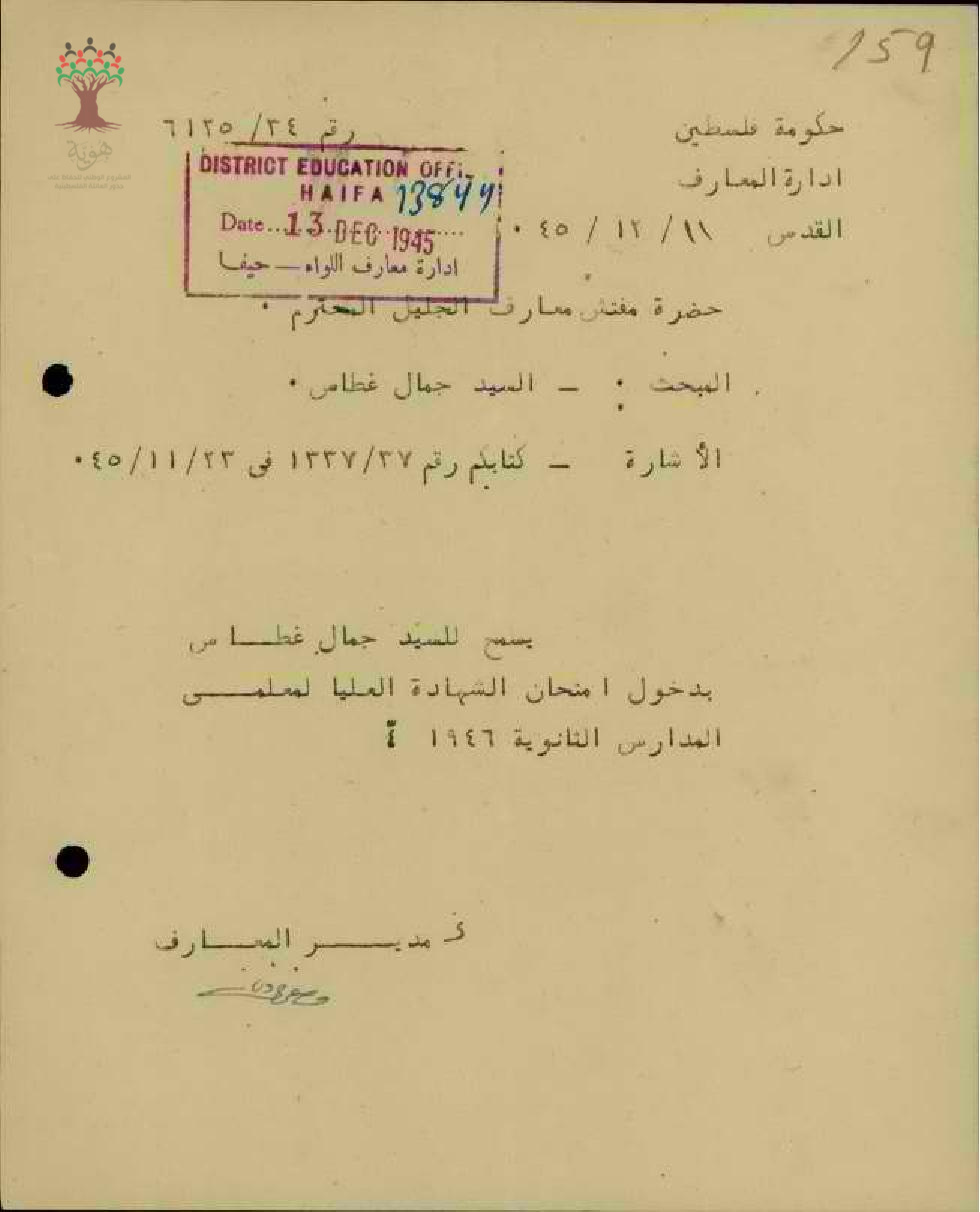 159
هوية
حكومة فلسطين
رقم ٣٤/ ٦١٢٥
ادارة المعارف
القدس ١١/ ١٢ / ٤٥ ٠
DISTRICT EDUCATION OFFI
HAIFA 13844
Date..13.DEC 1945.....
ادارة معارف اللواء — حيفا
حضرة مفتش معارف الجليل المحترم ٠
المبحث : — السيد جمال غطاس ٠
الأشارة — كتابكم رقم ١٣٣٧/٣٧ في ٤٥/١١/٢٣ ٠
يسمح للسيد جمال غطـــاس
بدخول امتحان الشهادة العليا لمعلمــــي
المدارس الثانوية ١٩٤٦
مديـــــر المعـــارف